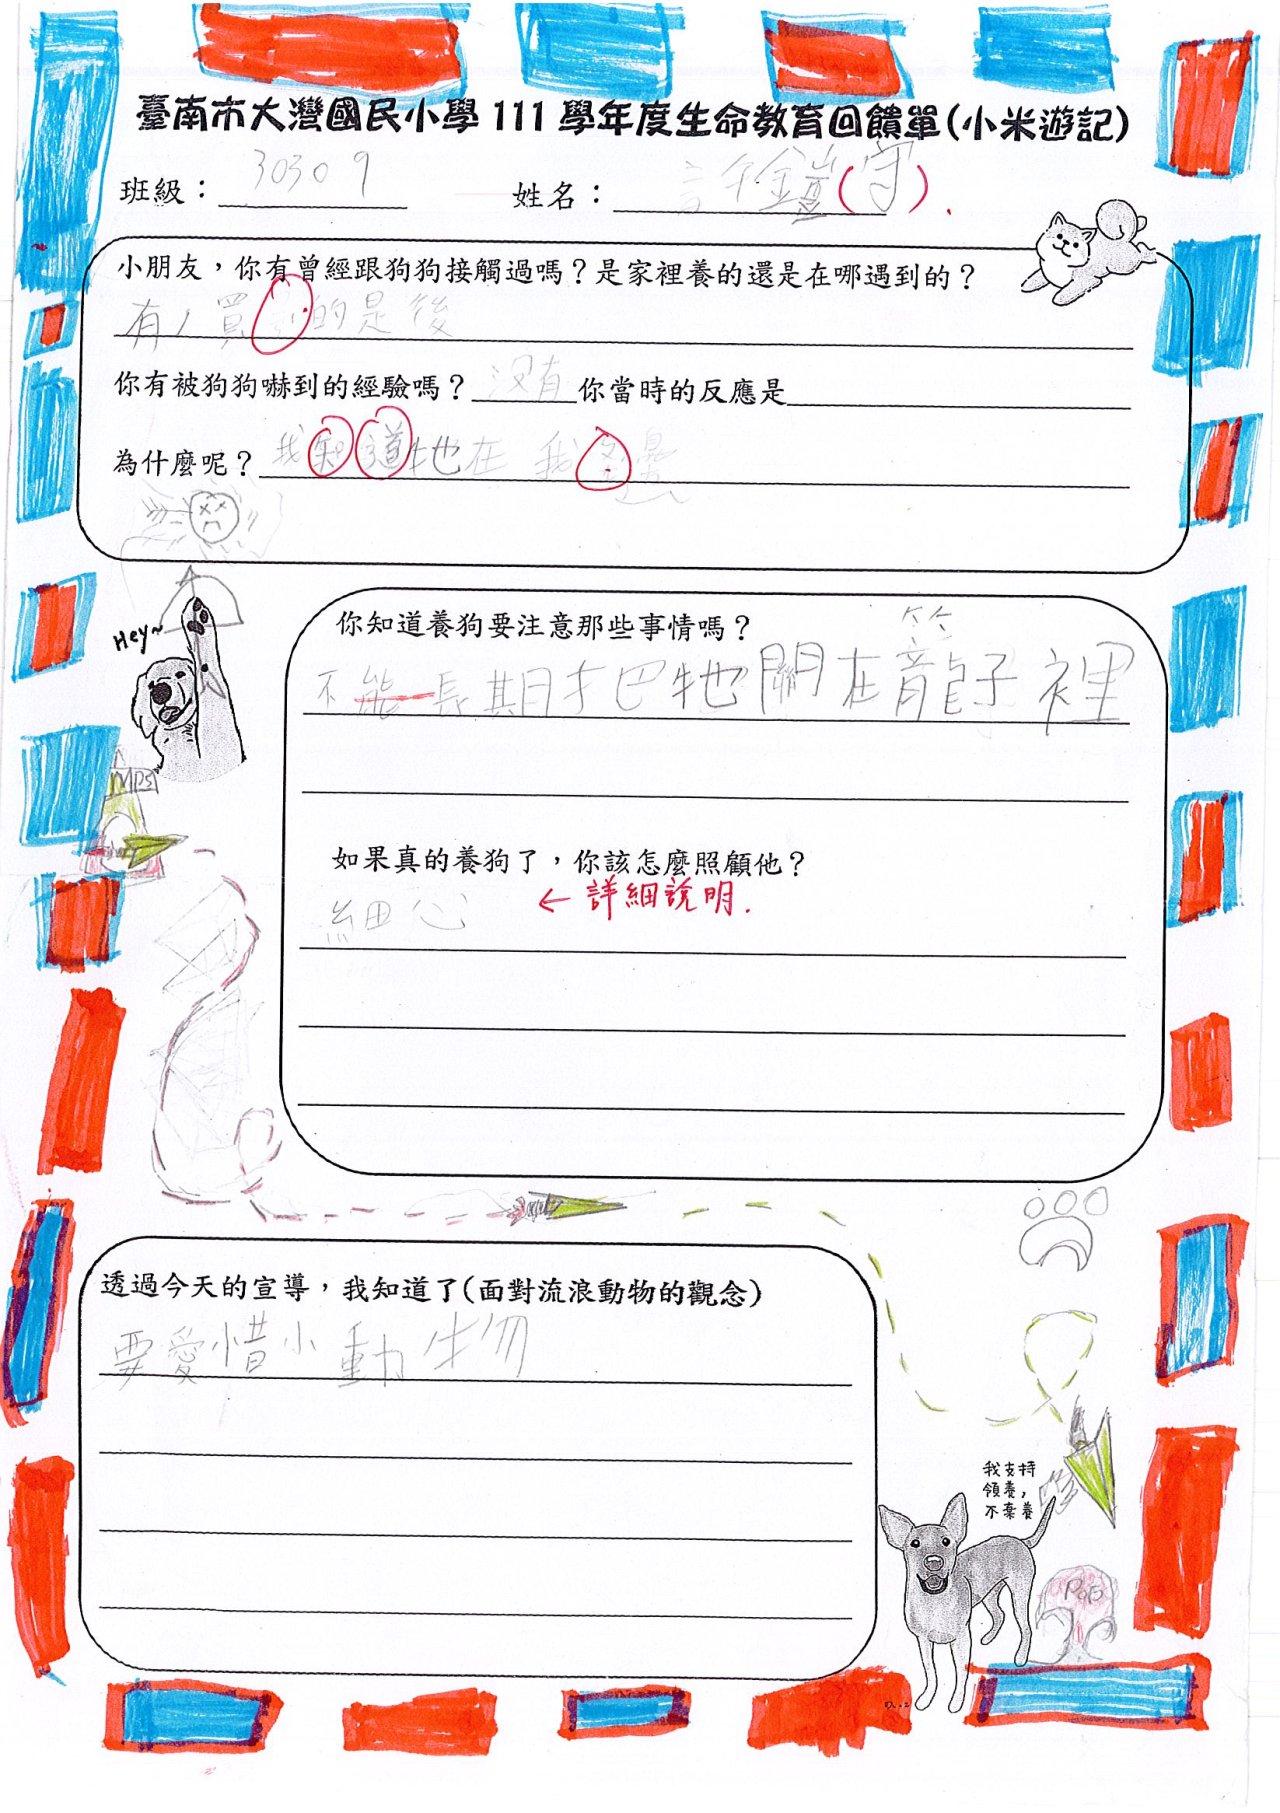 臺南市大灣國民小學111學年度生命教育回饋單(小米遊記)
班級：30309 姓名：許鎧守( ).
小朋友，你有曾經跟狗狗接觸過嗎？是家裡養的還是在哪遇到的？
有，買 的是後
你有被狗狗嚇到的經驗嗎？沒有你當時的反應是
為什麼呢？我知道牠在我 邊
Hey~
你知道養狗要注意那些事情嗎？
不能長期把牠關在籠子裡
如果真的養狗了，你該怎麼照顧他？
細心 ←詳細說明.
透過今天的宣導，我知道了(面對流浪動物的觀念)
要愛惜小動物
我支持
領養，
不棄養